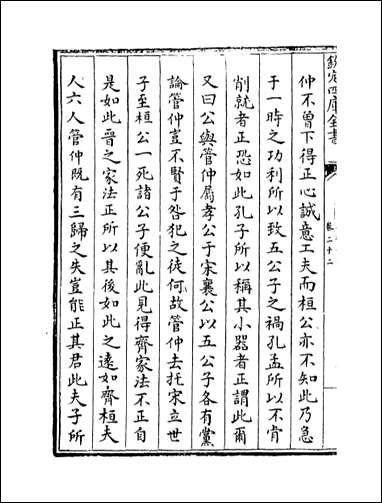 欽定四庫全書
卷二十二
仲不曽下得正心誠意工夫而桓公亦不知此乃急
于一時之功利所以致五公子之禍孔孟所以不肯
削就者正恐如此孔子所以稱其小器者正謂此爾
又曰公與管仲屬孝公于宋襄公以五公子各有黨
論管仲豈不賢于咎犯之徒何故管仲去托宋立世
子至桓公一死諸公子便亂此見得齊家法不正自
是如此晉之家法正所以其後如此之遠如齊桓夫
人六人管仲既有三歸之失豈能正其君此夫子所